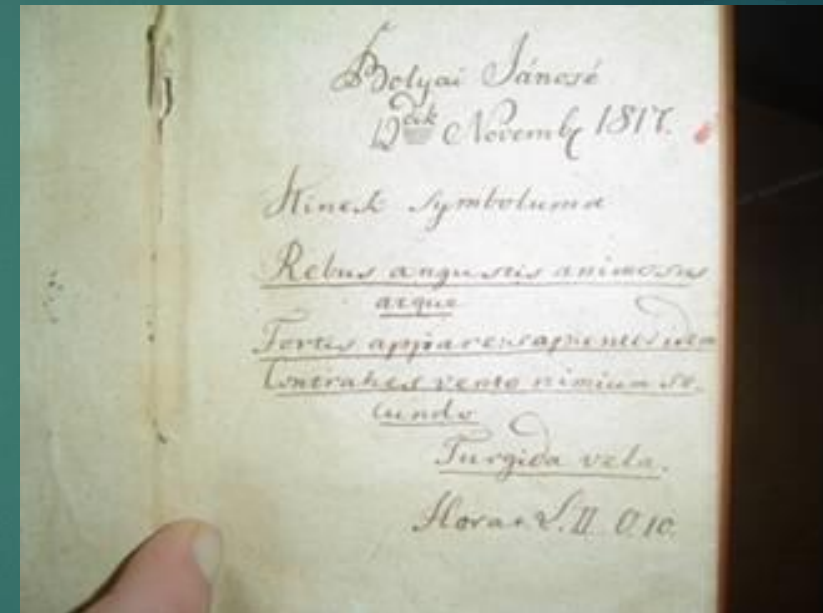 Bolyai Jánosé
12dik Novemb 1817.
Kinek Symboluma
Rebus angustis animosus
atque
Fortis appare: sapienter idem
Contrahes vento nimium se-
cundo
Turgida vela.
Horat L. II O. 10.